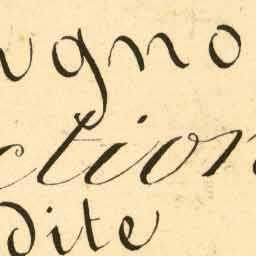 ugno
ction
dite